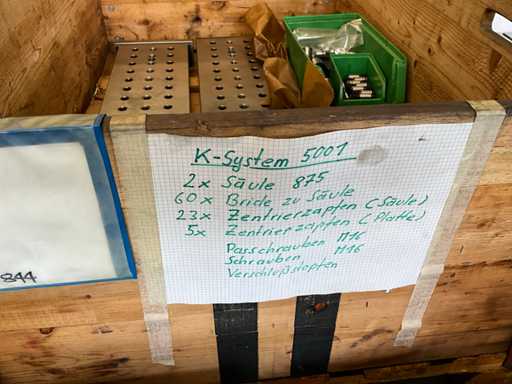 K-System 5001
2x Säule 875
60x Bride zu Säule
23x Zentrierzapfen (Säule)
5x Zentrierzapfen (Platte)
Passchrauben M16
Schrauben M16
Verschlußstopfen
844